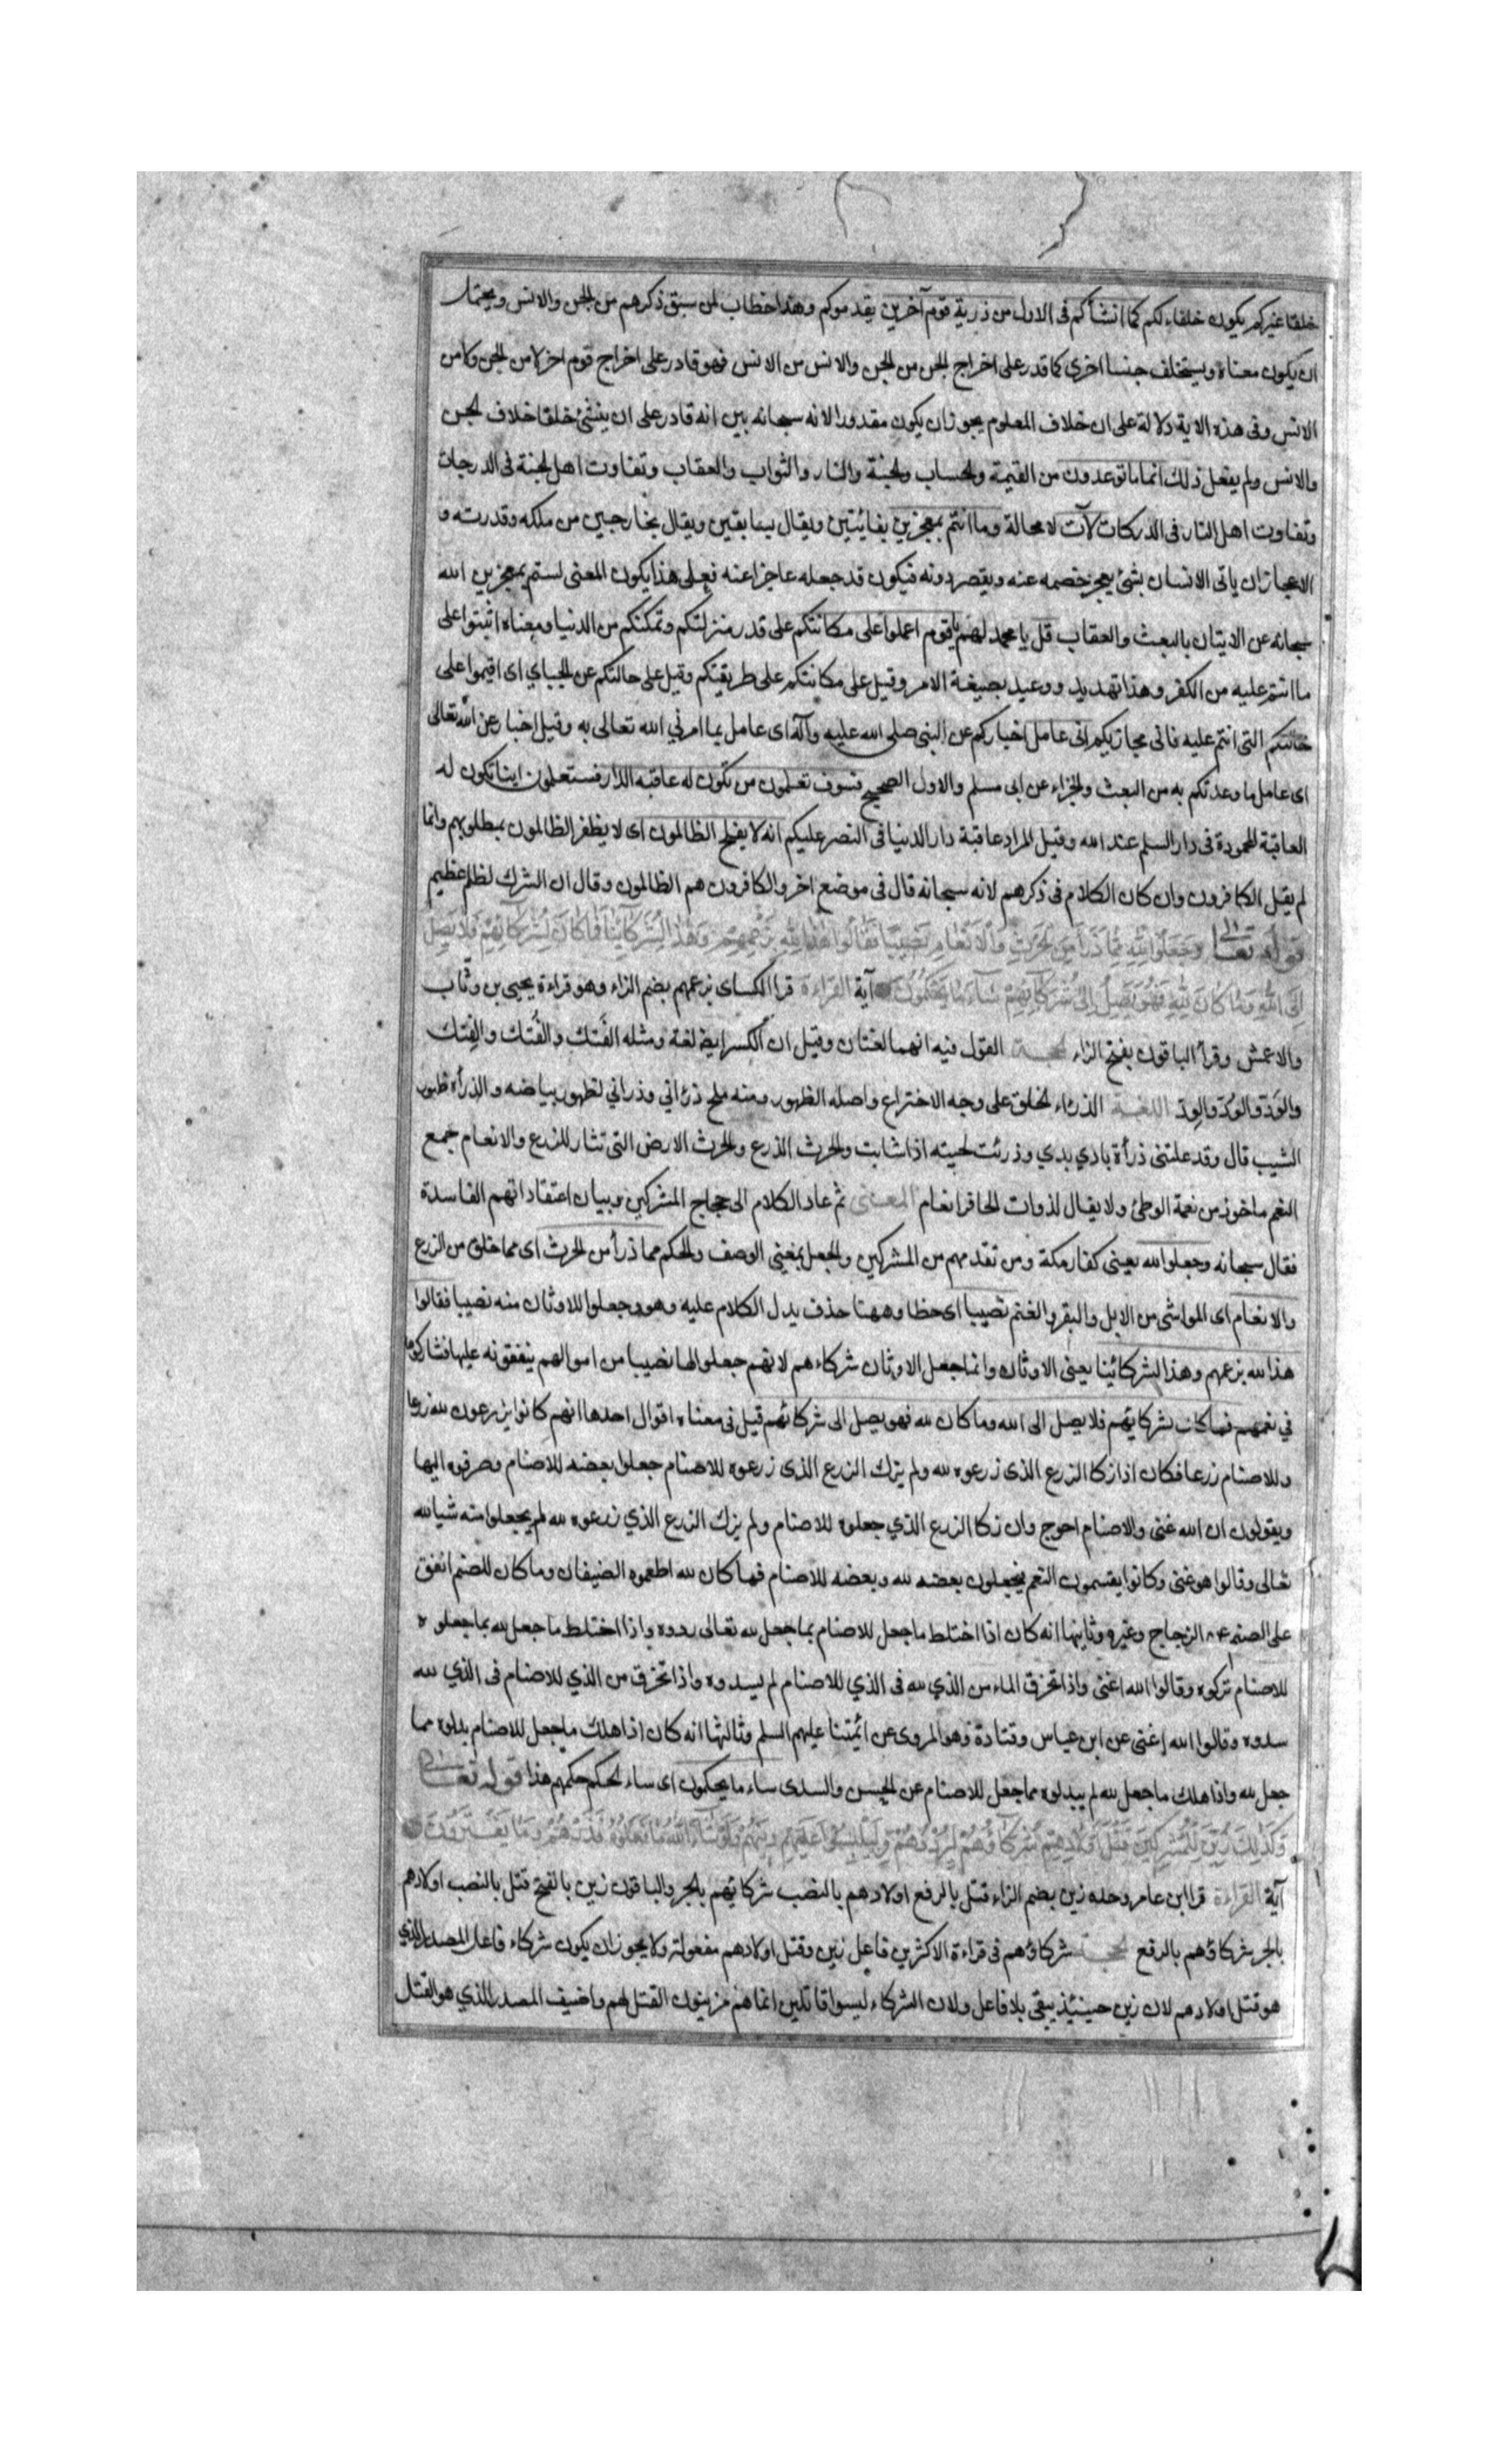 خلقا غيركم يكون خلفاء لكم كما انشأكم فى الاول من ذرية قوم آخرين يقدموكم وهذا خطاب لمن سبق ذكرهم من الجن والانس ويحتمل
ان يكون معناه ويستخلف جنسا اخرى كما قدر على اخراج الجن من الجن والانس من الانس فهو قادر على اخراج قوم اخر لا من الجن ولا من
الانس وفى هذه الاية دلالة على ان خلاف المعلوم يجوز ان يكون مقدورا لانه سبحانه بين انه قادر على ان ينشئ خلقا خلاف الجن
والانس ولم يفعل ذلك انما ما توعدون من القيمة والحساب والجنة والنار والثواب والعقاب وتفاوت اهل الجنة فى الدرجات
وتفاوت اهل النار فى الدركات لآت لا محالة وما انتم بمعجزين بفائتين ويقال بسابقين ويقال بخارجين من ملكه وقدرته و
الاعجاز ان ياتى الانسان بشئ يعجز خصمه عنه ويقصر دونه فيكون قد جعله عاجزا عنه فعلى هذا يكون المعنى لستم بمعجزين الله
سبحانه عن الاتيان بالبعث والعقاب قل يا محمد لهم يا قوم اعملوا على مكانتكم على قدر منزلتكم وتمكنكم من الدنيا ومعناه اثبتوا على
ما انتم عليه من الكفر وهذا تهديد ووعيد بصيغة الامر وقيل على مكانتكم على طريقتكم وقيل على حالتكم عن الجباي اى اقيموا على
حالتكم التى انتم عليه فانى مجازيكم انى عامل اخباركم عن النبى صلى الله عليه وآله اى عامل بما امرني الله تعالى به وقيل اخبار عن الله تعالى
اى عامل ما وعدتكم به من البعث والجزاء عن ابى مسلم والاول الصحيح فسوف تعلمون من تكون له عاقبة الدار فستعلمون اينا تكون له
العاقبة المحمودة فى دار السلم عند الله وقيل المراد عاقبة دار الدنيا فى النصر عليكم انه لا يفلح الظالمون اى لا يظفر الظالمون بمطلوبهم وانما
لم يقل الكافرون وان كان الكلام فى ذكرهم لانه سبحانه قال فى موضع اخر والكافرون هم الظالمون وقال ان الشرك لظلم عظيم
قوله تعالى وَجَعَلُوا لِلّهِ مِمَّا ذَرَأَ مِنَ الْحَرْثِ وَالْأَنْعَامِ نَصِيبًا فَقَالُوا هَذَا لِلّهِ بِزَعْمِهِمْ وَهَذَا لِشُرَكَآئِنَا فَمَا كَانَ لِشُرَكَآئِهِمْ فَلَا يَصِلُ
إِلَى اللهِ وَمَا كَانَ لِلّهِ فَهُوَ يَصِلُ إِلَى شُرَكَآئِهِمْ سَآءَ مَا يَحْكُمُونَ آية القراءة قرا الكساى بزعمهم بضم الزاء وهو قراءة يحيى بن وثاب
والاعمش وقرأ الباقون بفتح الزاء الحجة القول فيه انهما لغتان وقيل ان الكسر ايضا لغة ومثله الفَتك والفُتك والفِتك
والوَد والوُد والوِد اللغة الذرء الخلق على وجه الاختراع واصله الظهور ومنه ملح ذرءاني وذراني لظهور بياضه والذرأة ظهور
الشيب قال وقد علتنى ذرأة بادي بدي وذرئت لحيته اذا شابت والحرث الزرع والحرث الارض التى تثار للزرع والانعام جمع
النعم ماخوذ من نعمة الوطئ ولا يقال لذوات الحافر انعام المعنى ثم عاد الكلام الى حجاج المشركين وبيان اعتقاداتهم الفاسدة
فقال سبحانه وجعلوا لله يعنى كفار مكة ومن تقدمهم من المشركين والجعل بمعنى الوصف والحكم مما ذرأ من الحرث اى مما خلق من الزرع
والانعام اى المواشى من الابل والبقر والغنم نصيبا اى حظا وههنا حذف يدل الكلام عليه وهو وجعلوا للاوثان منه نصيبا فقالوا
هذا لله بزعمهم وهذا لشركائنا يعنى الاوثان وانما جعل الاوثان شركاءهم لانهم جعلوا لها نصيبا من اموالهم ينفقونه عليها فشاركوها
في نعمهم فما كان لشركائهم فلا يصل الى الله وما كان لله فهو يصل الى شركائهم قيل فى معناه اقوال احدها انهم كانوا يزرعون لله زرعا
وللاصنام زرعا فكان اذا زكا الزرع الذى زرعوه لله ولم يزك الزرع الذى زرعوه للاصنام جعلوا بعضه للاصنام وصرفوه اليها
ويقولون ان الله غنى والاصنام احوج وان زكا الزرع الذي جعلوه للاصنام ولم يزك الزرع الذي زرعوه لله لم يجعلوا منه شيا لله
تعالى وقالوا هو غنى وكانوا يقسمون النعم فيجعلون بعضه لله وبعضه للاصنام فما كان لله اطعموه الضيفان وما كان للصنم انفق
على الصنم عن الزجاج وغيره وثانيها انه كان اذا اختلط ما جعل للاصنام بما جعل لله تعالى ردوه واذا اختلط ما جعل لله بما جعلوه
للاصنام تركوه وقالوا الله اغنى واذا تخرق الماء من الذي لله فى الذي للاصنام لم يسدوه واذا تخرق من الذي للاصنام فى الذي لله
سدوه وقالوا الله اغنى عن ابن عباس وقتادة وهو المروى عن ائمتنا عليهم السلم وثالثها انه كان اذا هلك ما جعل للاصنام بدلوه مما
جعل لله واذا هلك ما جعل لله لم يبدلوه مما جعل للاصنام عن الحسن والسدى ساء ما يحكمون اى ساء الحكم حكمهم هذا قوله تعالى
وَكَذَلِكَ زَيَّنَ لِكَثِيرٍ مِنَ الْمُشْرِكِينَ قَتْلَ أَوْلَادِهِمْ شُرَكَآؤُهُمْ لِيُرْدُوهُمْ وَلِيَلْبِسُوا عَلَيْهِمْ دِينَهُمْ وَلَوْ شَآءَ اللهُ مَا فَعَلُوهُ فَذَرْهُمْ وَمَا يَفْتَرُونَ
آية القراءة قرا ابن عامر وحده زين بضم الزاء قتل بالرفع اولادهم بالنصب شركائهم بالجر والباقون زين بالفتح قتل بالنصب اولادهم
بالجر شركاؤهم بالرفع الحجة شركاؤهم فى قراءة الاكثرين فاعل زين وقتل اولادهم مفعوله ولا يجوز ان يكون شركاء فاعل المصدر الذي
هو قتل اولادهم لان زين حينئذ يبقى بلا فاعل ولان الشركاء ليسوا قاتلين انما هم مزينون القتل لهم واضيف المصدر الذي هو القتل